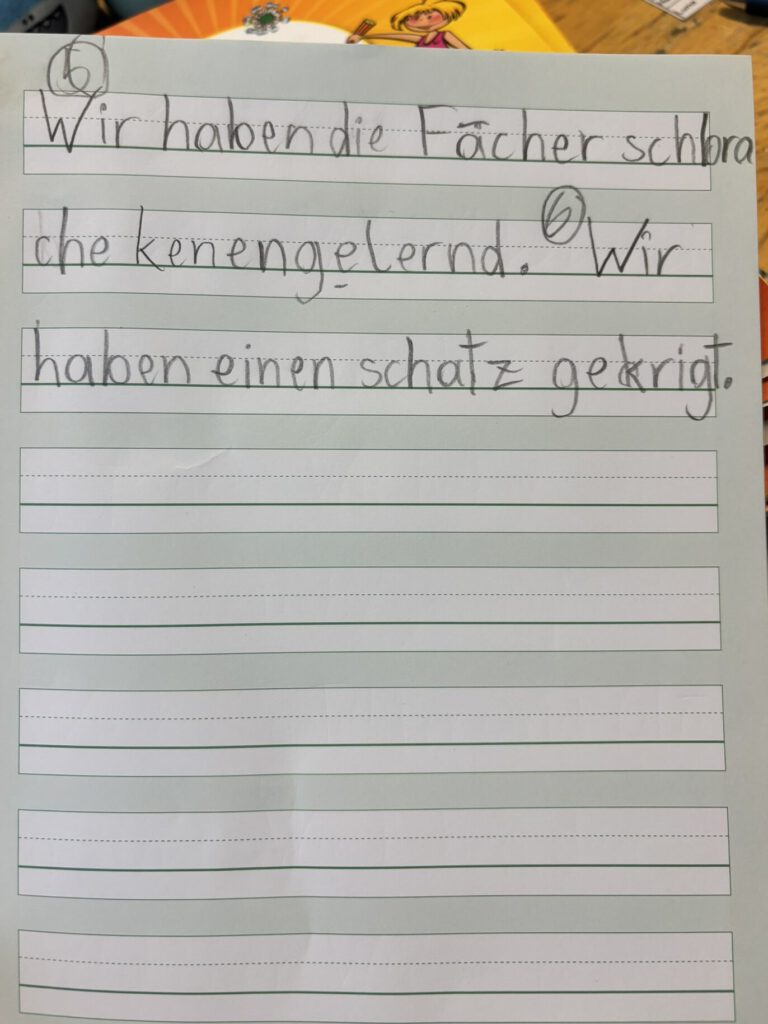 ⑤
Wir haben die Fächer schbra
che kenengelernd. ⑥ Wir
haben einen schatz gekrigt.